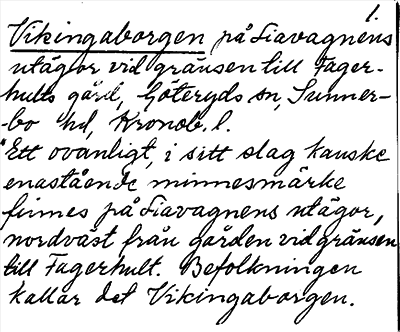 1.
Vikingaborgen på Liavagnens
utägor vid gränsen till Fager-
hults gård, Göteryds sn, Sunner-
-bo hd, Kronob. l.
"Ett ovanligt, i sitt slag kanske
enastående minnesmärke
finnes på Liavagnens utägor,
nordväst från gården vid gränsen
till Fagerhult. Befolkningen
kallar det Vikingaborgen.